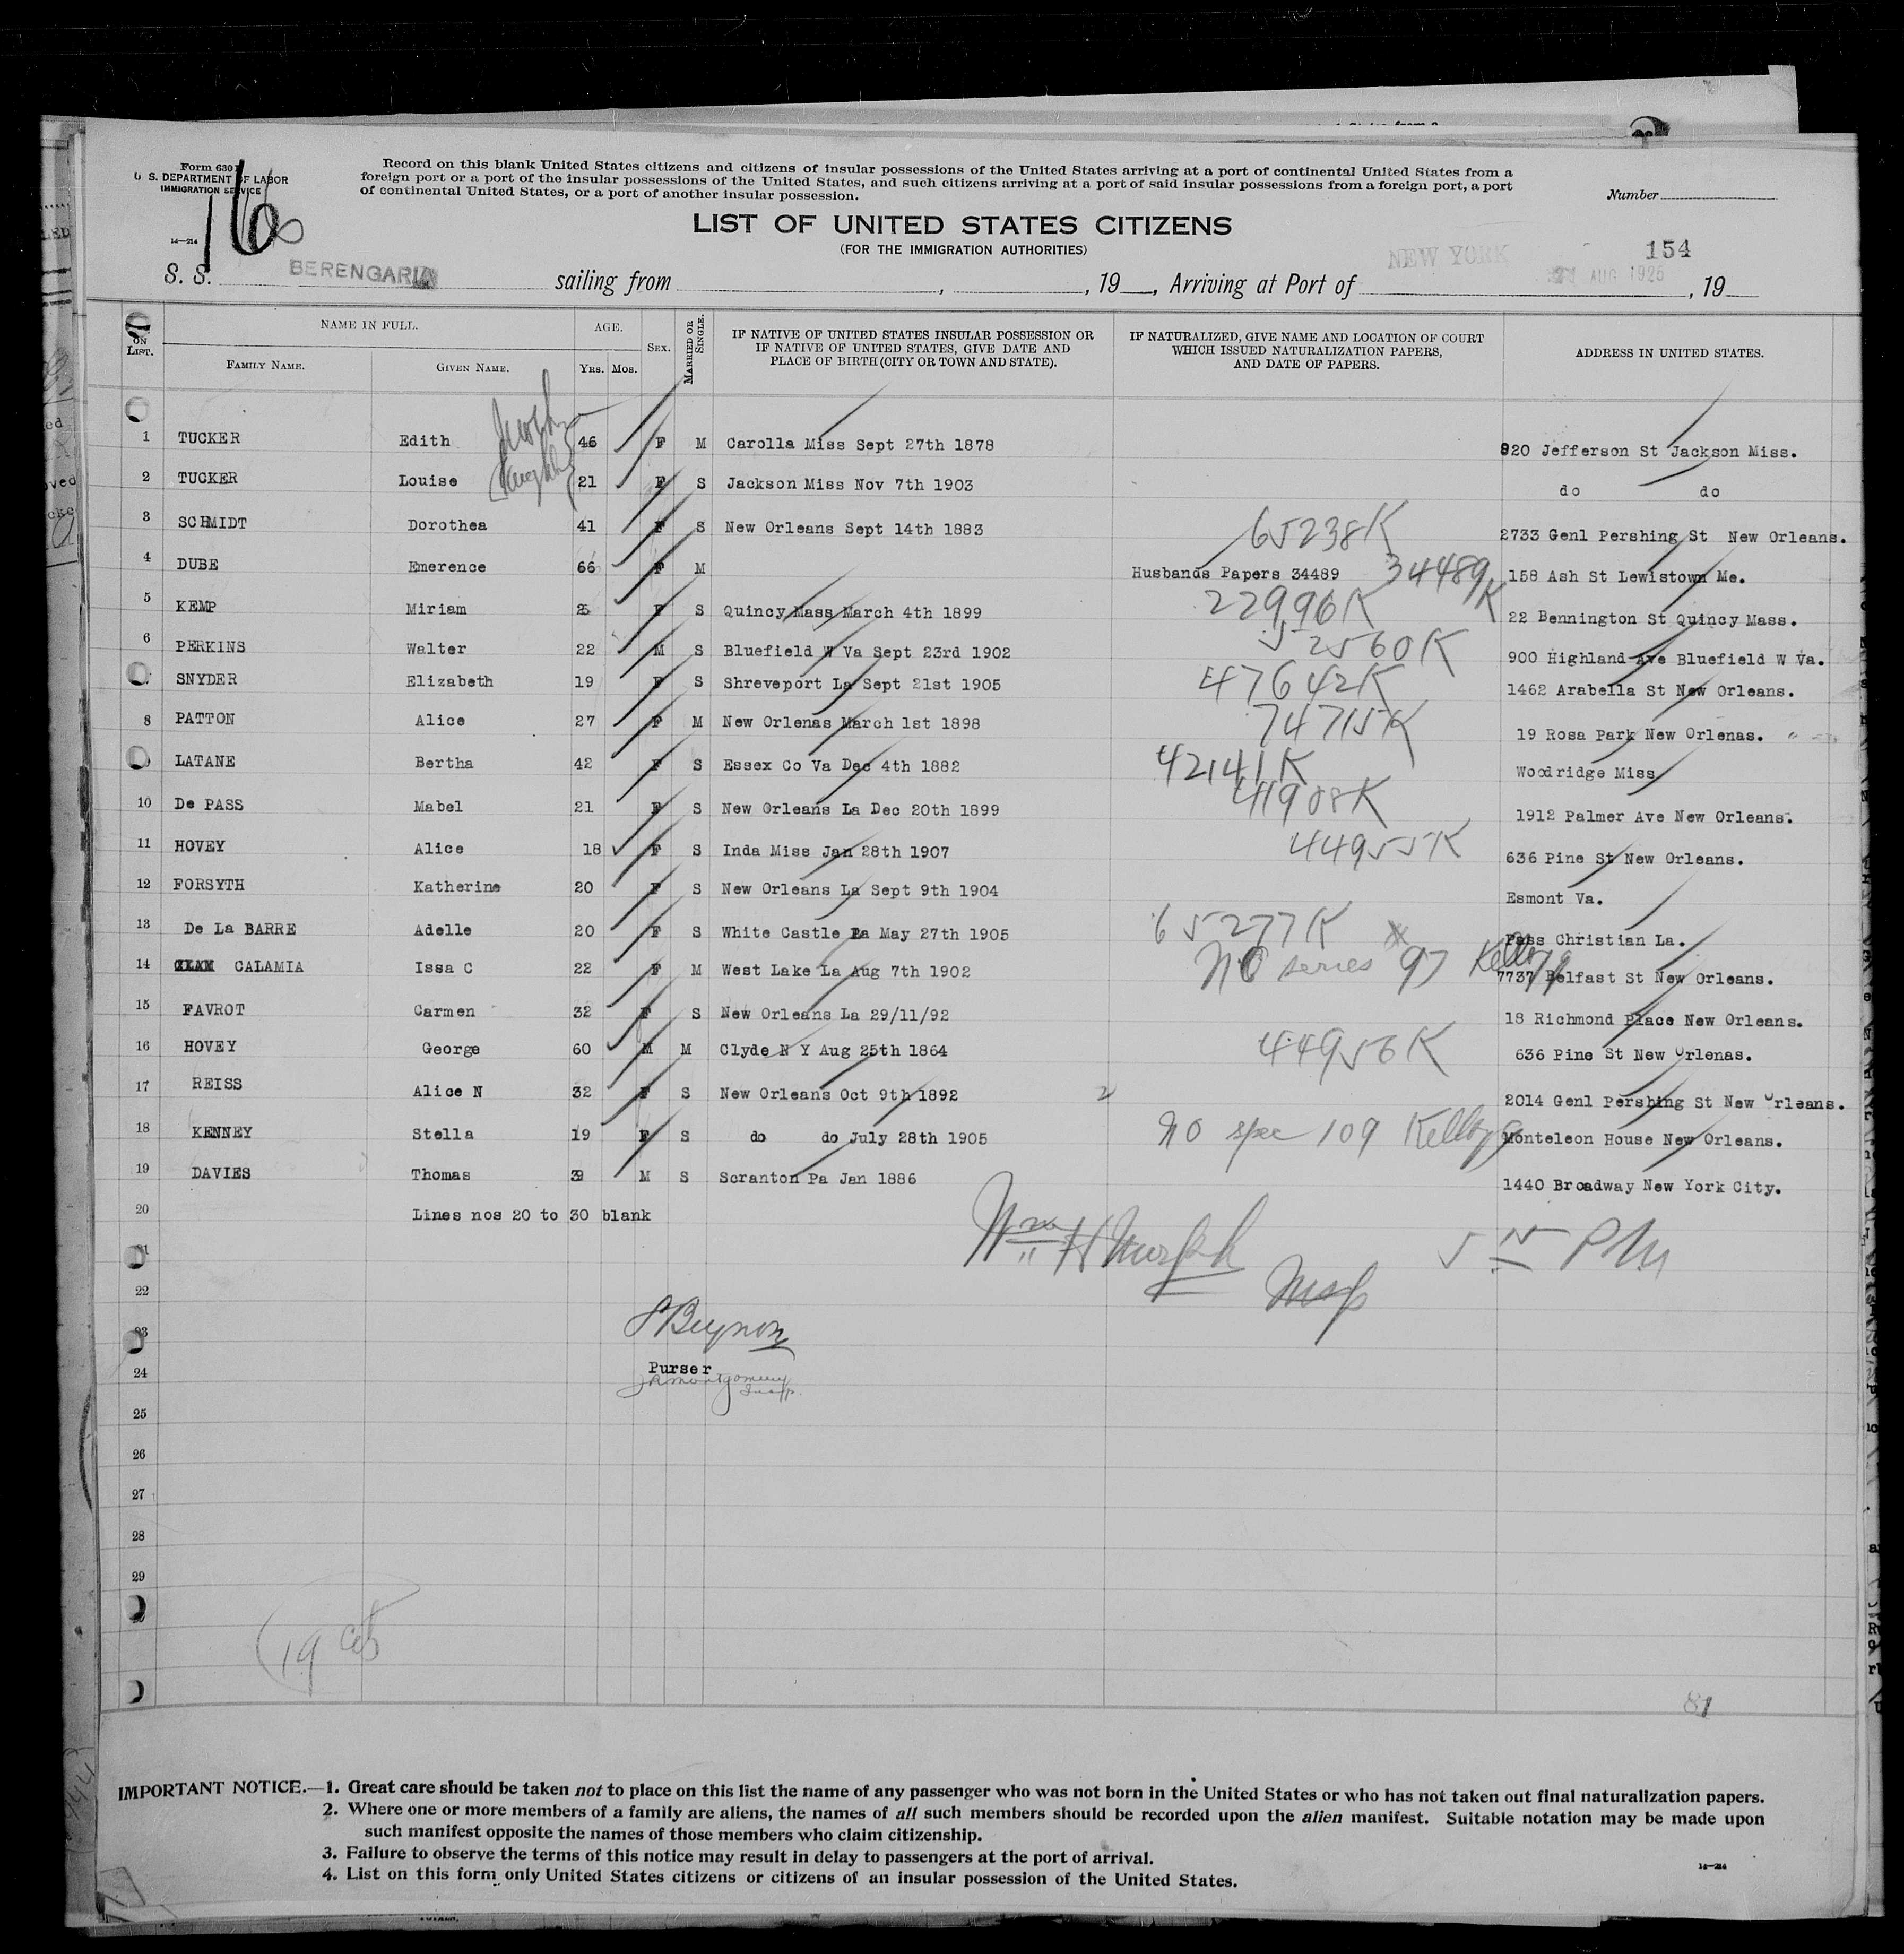 Form 630
U. S. DEPARTMENT OF LABOR
IMMIGRATION SERVICE
14—214
16
Record on this blank United States citizens and citizens of insular possessions of the United States arriving at a port of continental United States from a
foreign port or a port of the insular possessions of the United States, and such citizens arriving at a port of said insular possessions from a foreign port, a port
of continental United States, or a port of another insular possession.
Number
LIST OF UNITED STATES CITIZENS
(FOR THE IMMIGRATION AUTHORITIES)
154
S. S. BERENGARIA sailing from , , 19 , Arriving at Port of NEW YORK 21 AUG 1925 , 19
ON LIST. NAME IN FULL. AGE. SEX. MARRIED OR SINGLE. IF NATIVE OF UNITED STATES INSULAR POSSESSION OR IF NATIVE OF UNITED STATES, GIVE DATE AND PLACE OF BIRTH (CITY OR TOWN AND STATE). IF NATURALIZED, GIVE NAME AND LOCATION OF COURT WHICH ISSUED NATURALIZATION PAPERS, AND DATE OF PAPERS. ADDRESS IN UNITED STATES.
FAMILY NAME. GIVEN NAME. YRS. MOS.
1 TUCKER Edith 46 F M Carolla Miss Sept 27th 1878 820 Jefferson St Jackson Miss.
2 TUCKER Louise 21 F S Jackson Miss Nov 7th 1903 do do
3 SCHMIDT Dorothea 41 F S New Orleans Sept 14th 1883 65238K 2733 Genl Pershing St New Orleans.
4 DUBE Emerence 66 F M Husbands Papers 34489 34489K 158 Ash St Lewistown Me.
5 KEMP Miriam 25 F S Quincy Mass March 4th 1899 22996K 22 Bennington St Quincy Mass.
6 PERKINS Walter 22 M S Bluefield W Va Sept 23rd 1902 52560K 900 Highland Ave Bluefield W Va.
SNYDER Elizabeth 19 F S Shreveport La Sept 21st 1905 47642K 1462 Arabella St New Orleans.
8 PATTON Alice 27 F M New Orlenas March 1st 1898 74715K 19 Rosa Park New Orlenas.
LATANE Bertha 42 F S Essex Co Va Dec 4th 1882 42141K Woodridge Miss
10 De PASS Mabel 21 F S New Orleans La Dec 20th 1899 41908K 1912 Palmer Ave New Orleans.
11 HOVEY Alice 18 F S Inda Miss Jan 28th 1907 44955K 636 Pine St New Orleans.
12 FORSYTH Katherine 20 F S New Orleans La Sept 9th 1904 Esmont Va.
13 De La BARRE Adelle 20 F S White Castle La May 27th 1905 65277K Pass Christian La.
14 CALAMIA Issa C 22 F M West Lake La Aug 7th 1902 NO series 97 Kellogg 7737 Belfast St New Orleans.
15 FAVROT Carmen 32 F S New Orleans La 29/11/92 18 Richmond Place New Orleans.
16 HOVEY George 60 M M Clyde N Y Aug 25th 1864 44956K 636 Pine St New Orlenas.
17 REISS Alice N 32 F S New Orleans Oct 9th 1892 2 2014 Genl Pershing St New Orleans.
18 KENNEY Stella 19 F S do do July 28th 1905 NO spec 109 Kellogg Monteleon House New Orleans.
19 DAVIES Thomas 39 M S Scranton Pa Jan 1886 1440 Broadway New York City.
20 Lines nos 20 to 30 blank
Wm H Murph
Insp
PM
22
Beynon
24 Purser
JA Montgomery
Insp.
25
26
27
28
29
19
81
IMPORTANT NOTICE.—1. Great care should be taken not to place on this list the name of any passenger who was not born in the United States or who has not taken out final naturalization papers.
2. Where one or more members of a family are aliens, the names of all such members should be recorded upon the alien manifest. Suitable notation may be made upon
such manifest opposite the names of those members who claim citizenship.
3. Failure to observe the terms of this notice may result in delay to passengers at the port of arrival.
4. List on this form only United States citizens or citizens of an insular possession of the United States.
14—214